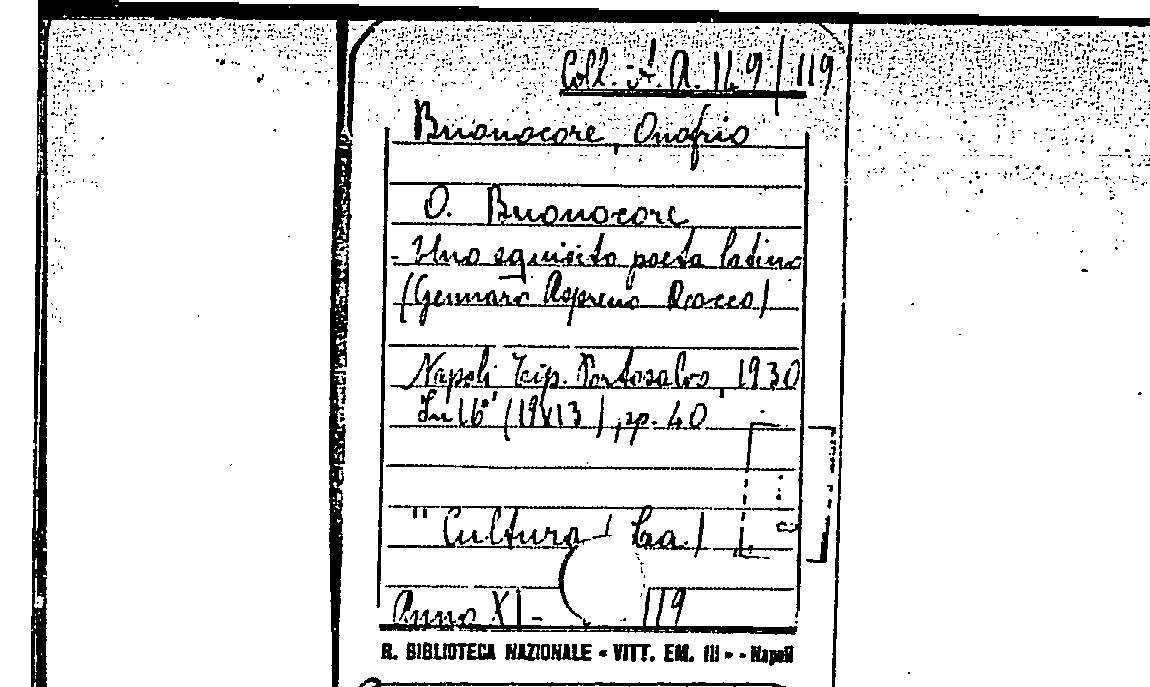 Coll. it. A. 149/119
Buonocore, Onofrio
O. Buonocore
- Uno squisito poeta latino
(Gennaro Aspreno Rocco)
Napoli Tip. Portosalvo, 1930
In 16° (19x13), pp. 40
"Cultura (La)
Anno XI - 119
R. BIBLIOTECA NAZIONALE « VITT. EM. III » - Napoli